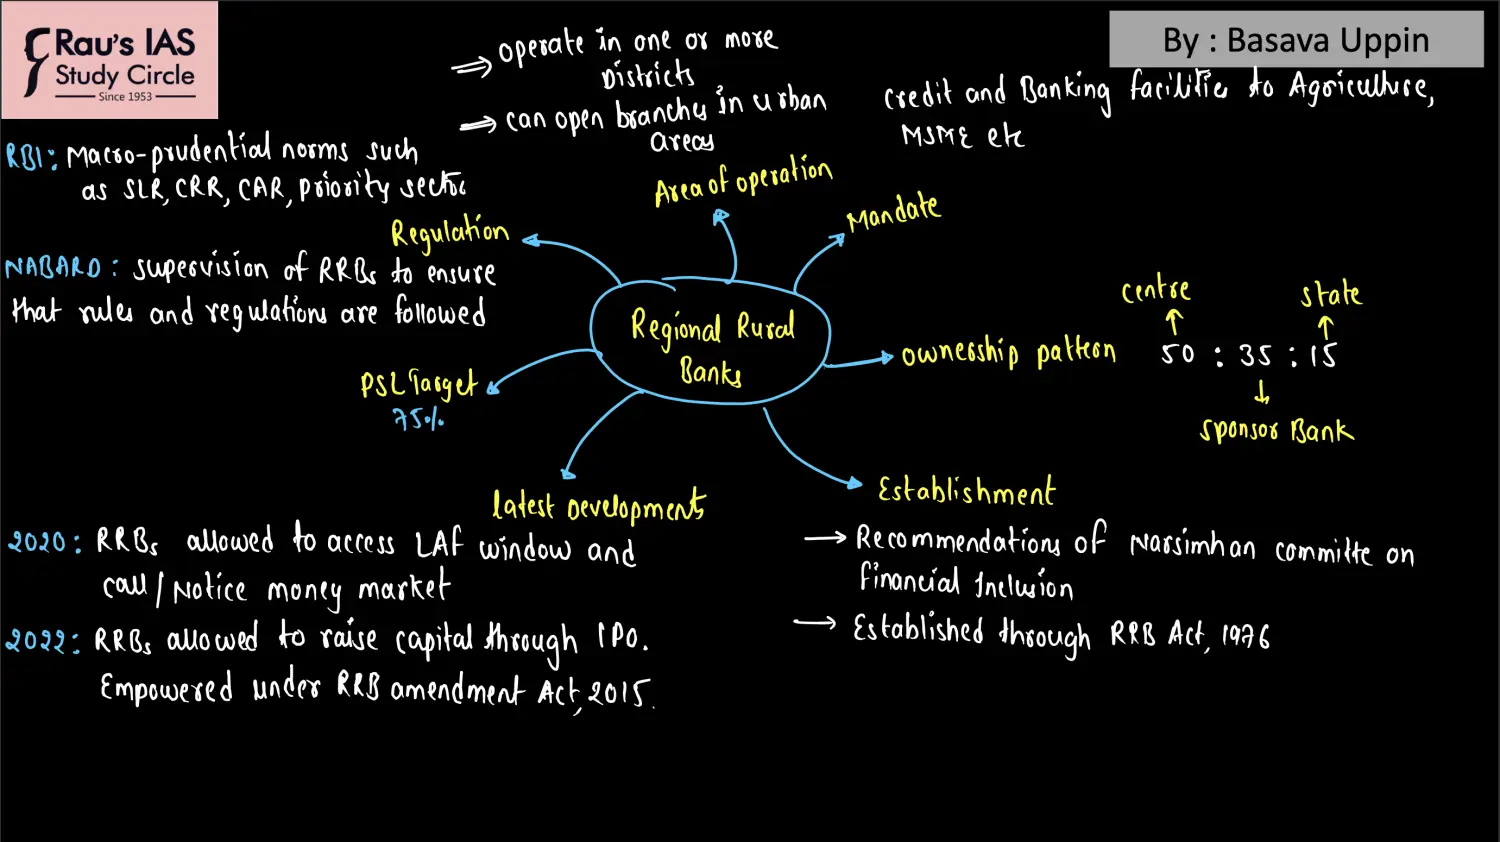 Rau's IAS
Study Circle
Since 1953
By : Basava Uppin
⇒ operate in one or more
Districts
⇒ can open branches in urban
areas
Area of operation
credit and Banking facilities to Agriculture,
MSME etc
Mandate
RBI: Macro-prudential norms such
as SLR, CRR, CAR, Priority sector
Regulation
NABARD: supervision of RRBs to ensure
that rules and regulations are followed
Regional Rural
Banks
centre
state
ownership pattern 50 : 35 : 15
sponsor Bank
PSL Target
75%
Latest Developments
2020: RRBs allowed to access LAF window and
call/Notice money market
2022: RRBs allowed to raise capital through IPO.
Empowered under RRB amendment Act, 2015.
Establishment
→ Recommendations of Narsimhan committe on
Financial Inclusion
→ Established through RRB Act, 1976